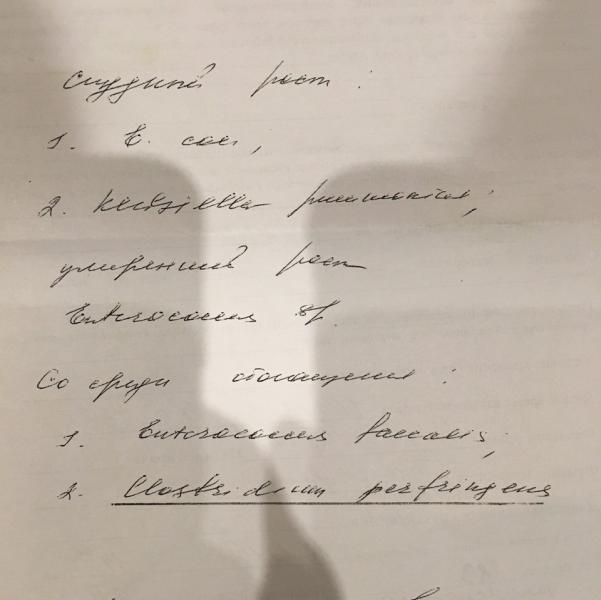 скудный рост :
1. E. coli,
2. Klebsiella pneumoniae;
умеренный рост
Enterococcus sp.
Со среды обогащения :
1. Enterococcus faecalis;
2. Clostridium perfringens